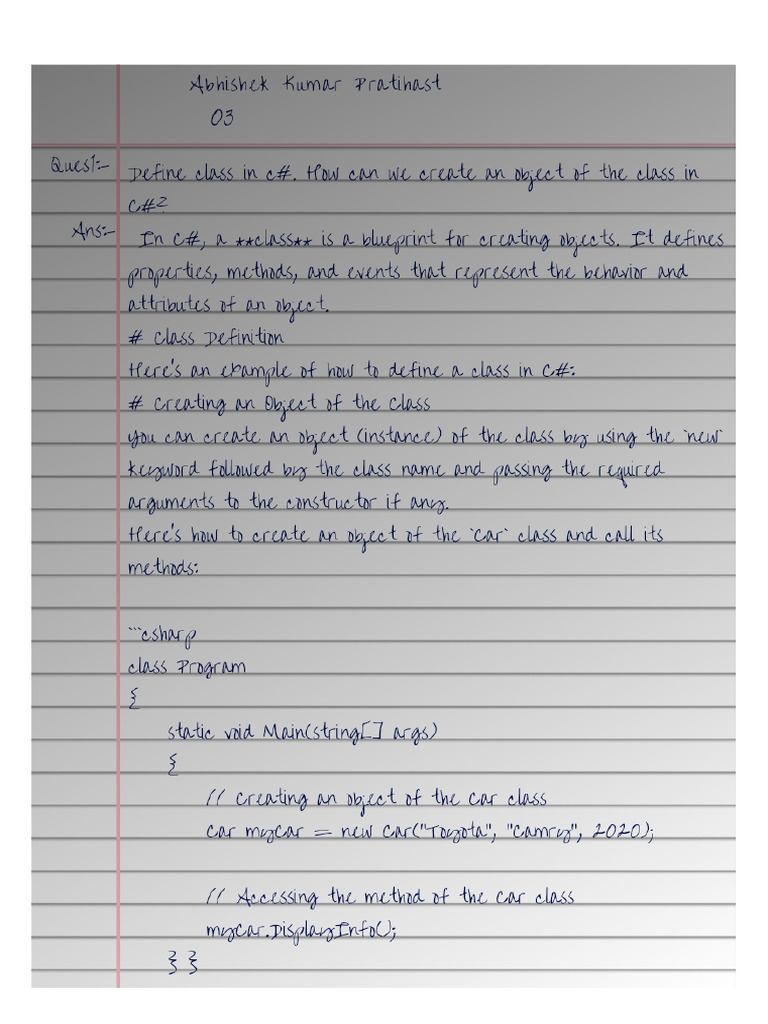 Abhishek Kumar Pratihast
03
Ques1:-
Define class in c#. How can we create an object of the class in
C#?
Ans:-
In C#, a **class** is a blueprint for creating objects. It defines
properties, methods, and events that represent the behavior and
attributes of an object.
# Class Definition
Here's an example of how to define a class in C#:
# Creating an Object of the Class
You can create an object (instance) of the class by using the `new`
keyword followed by the class name and passing the required
arguments to the constructor if any.
Here's how to create an object of the `Car` class and call its
methods:
```csharp
class Program
{
static void Main(string[] args)
{
// Creating an object of the Car class
Car myCar = new Car("Toyota", "Camry", 2020);
// Accessing the method of the Car class
myCar.DisplayInfo();
} }